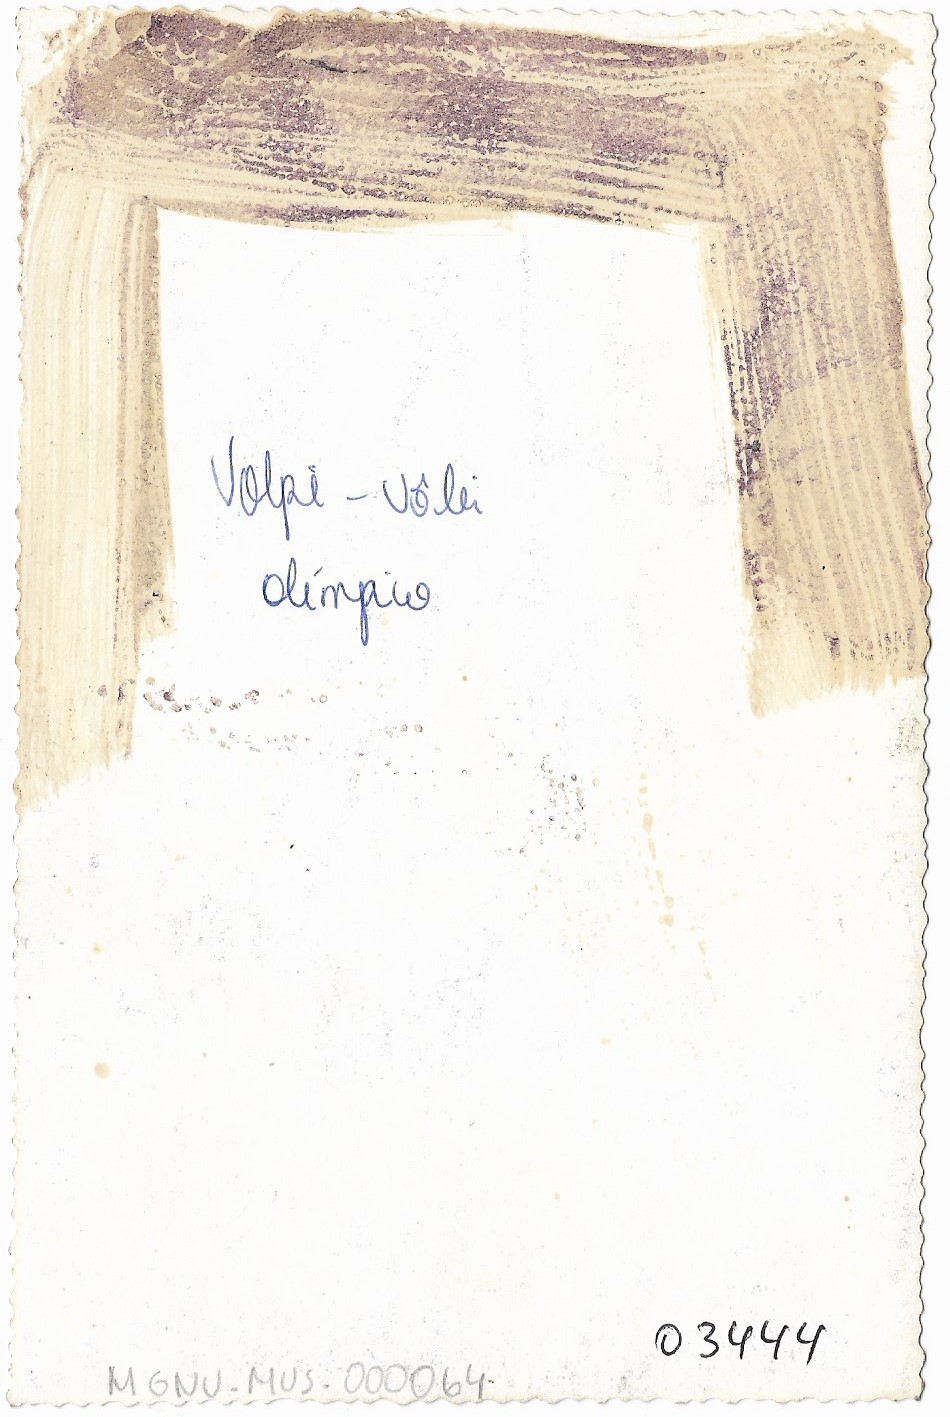 Volpi - vôlei
olímpico
03444
MGNU-MUS-000064